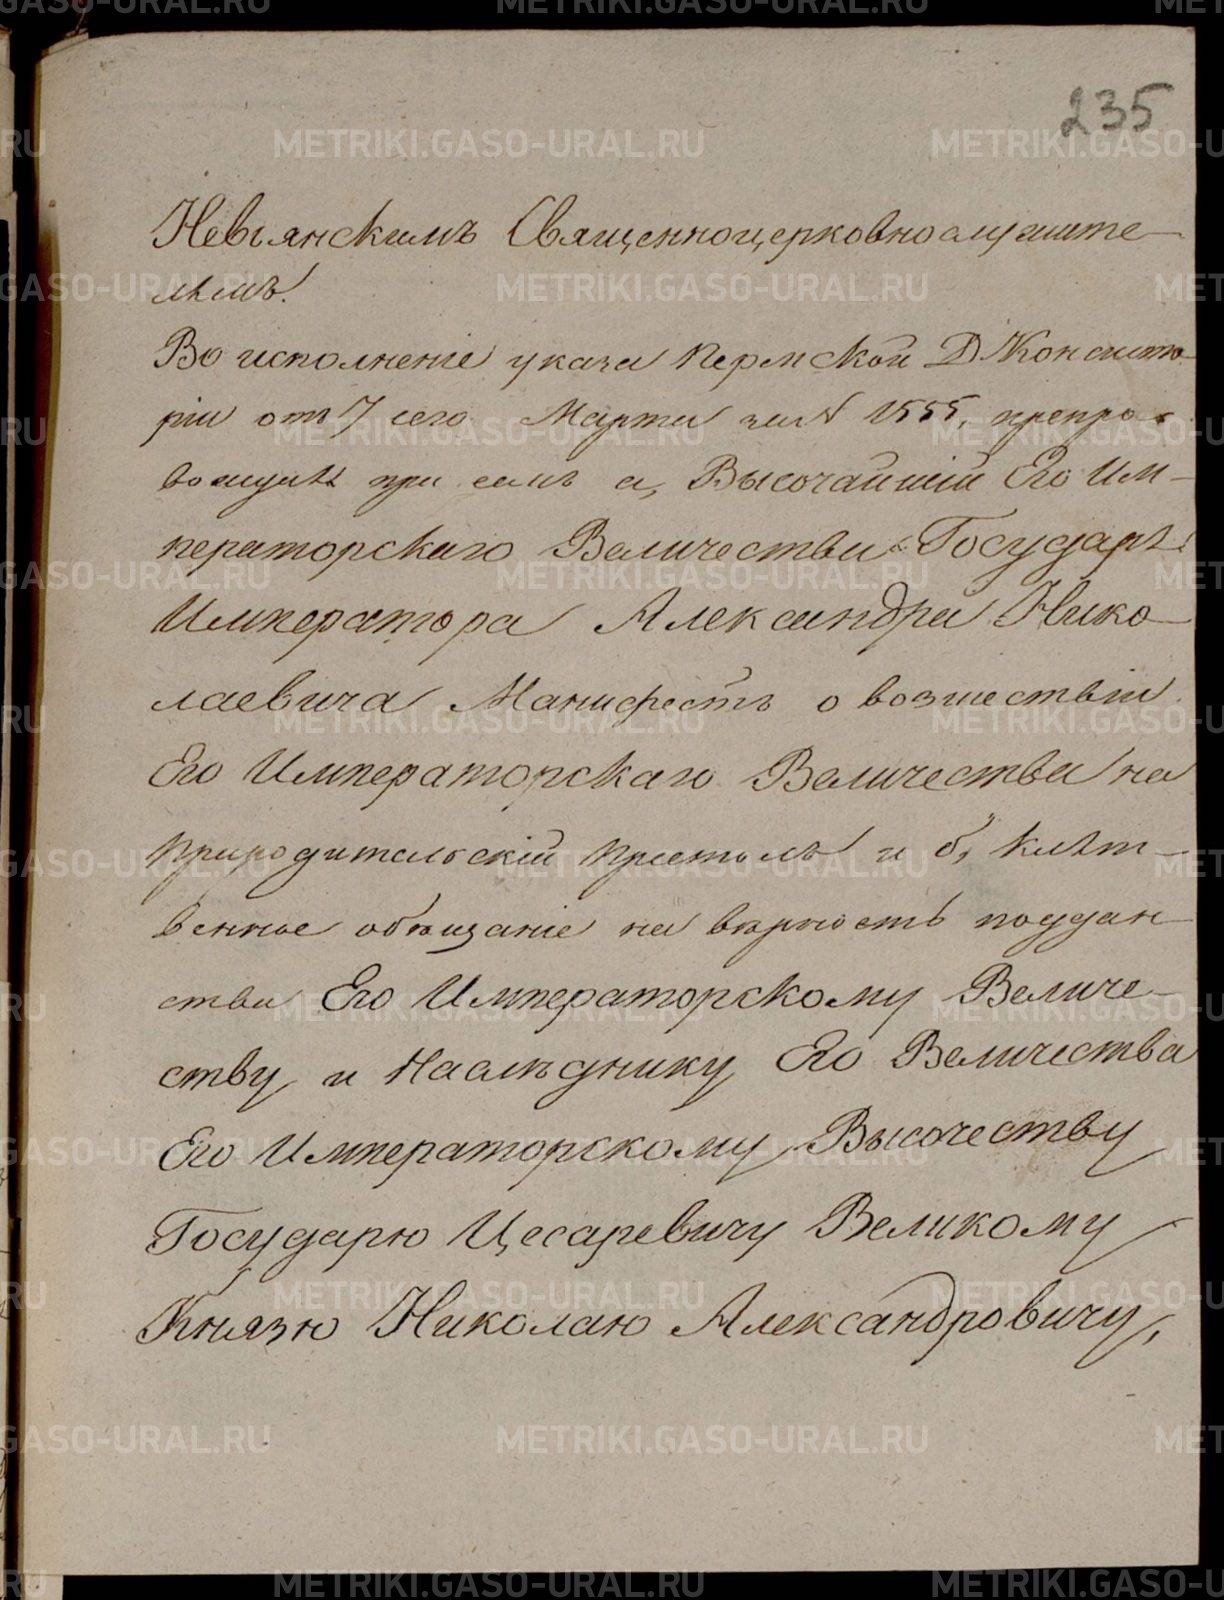 235
Невьянскимъ Священноцерковнослужите-
лямъ.
Во исполненіе указа Пермской Д. Консисто-
ріи отъ 7 сего Марта за № 1555, препро-
вождая при семъ а, Высочайшій Его Им-
ператорскаго Величества Государя
Императора Александра Нико-
лаевича Манифестъ о возшествіи
Его Императорскаго Величества на
прародительскій престолъ и б, клят-
венное обѣщаніе на вѣрность поддан-
ства Его Императорскому Величе-
ству и Наслѣднику Его Величества
Его Императорскому Высочеству
Государю Цесаревичу Великому
Князю Николаю Александровичу,
METRIKI.GASO-URAL.RU